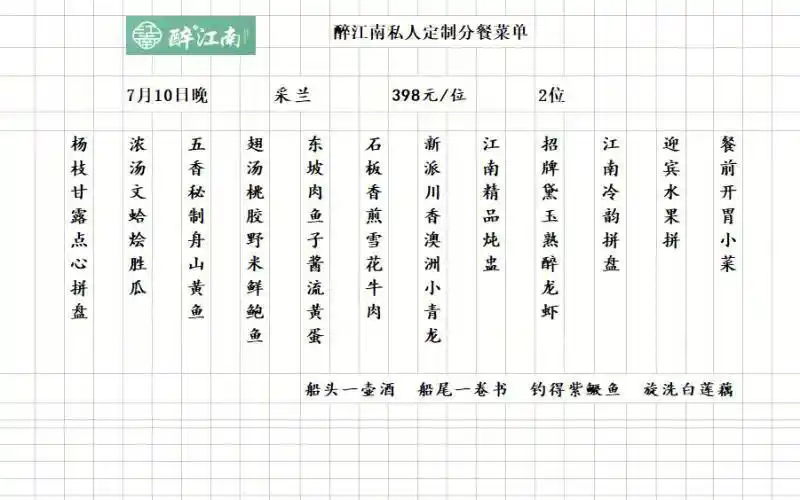 醉江南
醉江南私人定制分餐菜单
7月10日晚 采兰 398元/位 2位
餐前开胃小菜
迎宾水果拼
江南冷韵拼盘
招牌黛玉熟醉龙虾
江南精品炖盅
新派川香澳洲小青龙
石板香煎雪花牛肉
东坡肉鱼子酱流黄蛋
翅汤桃胶野米鲜鲍鱼
五香秘制舟山黄鱼
浓汤文蛤烩胜瓜
杨枝甘露点心拼盘
船头一壶酒 船尾一卷书 钓得紫鳜鱼 旋洗白莲藕